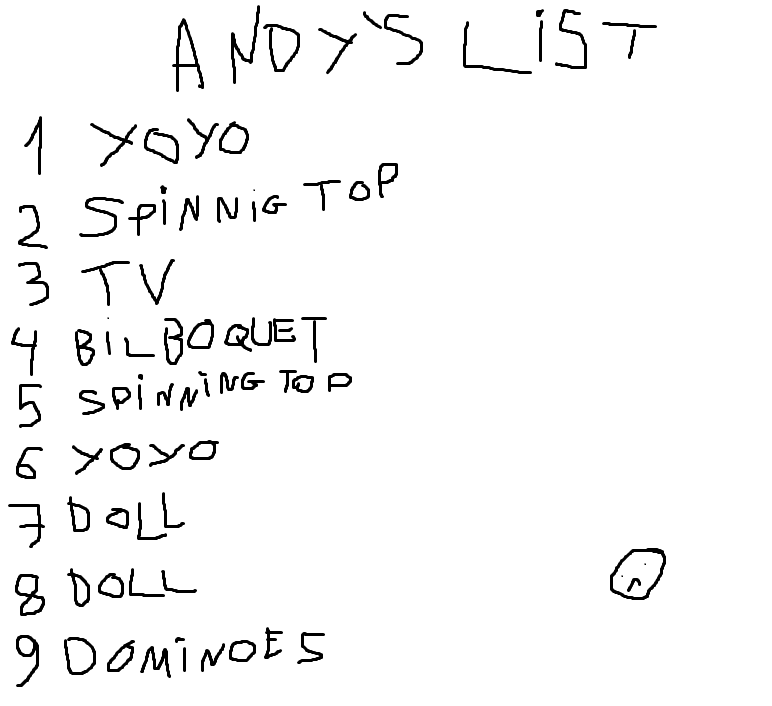 ANDY'S LIST
1 YOYO
2 SPINNIG TOP
3 TV
4 BILBOQUET
5 SPINNING TOP
6 YOYO
7 DOLL
8 DOLL
9 DOMINOES